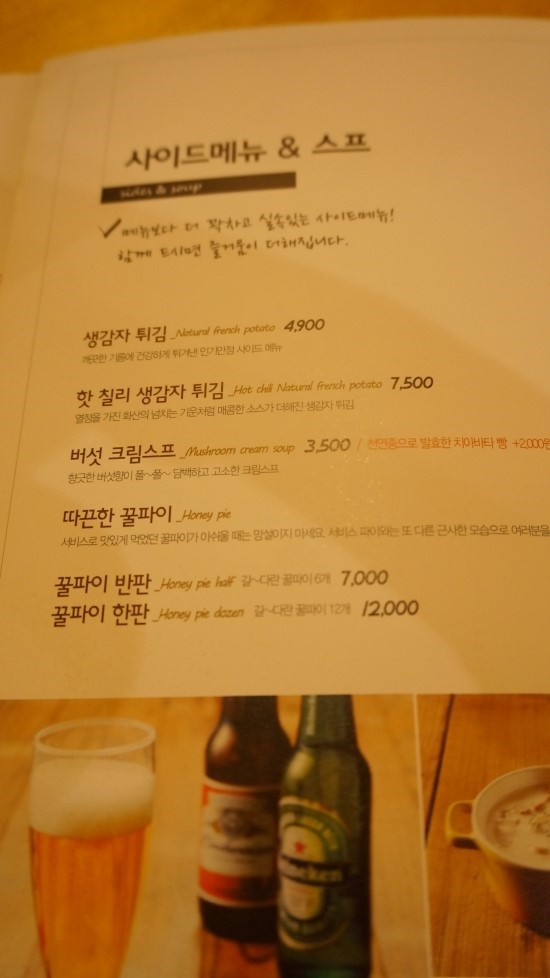 사이드메뉴 & 스프
sides & soup
메뉴보다 더 꽉차고 실속있는 사이드메뉴!
함께 드시면 즐거움이 더해집니다.
생감자 튀김 _Natural french potato 4,900
깨끗한 기름에 건강하게 튀겨낸 인기만점 사이드 메뉴
핫 칠리 생감자 튀김 _Hot chili Natural french potato 7,500
열정을 가진 화산의 넘치는 기운처럼 매콤한 소스가 더해진 생감자 튀김
버섯 크림스프 _Mushroom cream soup 3,500 / 천연종으로 발효한 치아바타 빵 +2,000원
향긋한 버섯향이 폴~폴~ 담백하고 고소한 크림스프
따끈한 꿀파이 _Honey pie
서비스로 맛있게 먹었던 꿀파이가 아쉬울 때는 망설이지 마세요. 서비스 파이와는 또 다른 근사한 모습으로 여러분을
꿀파이 반판 _Honey pie half 길~다란 꿀파이 6개 7,000
꿀파이 한판 _Honey pie dozen 길~다란 꿀파이 12개 12,000
Heineken